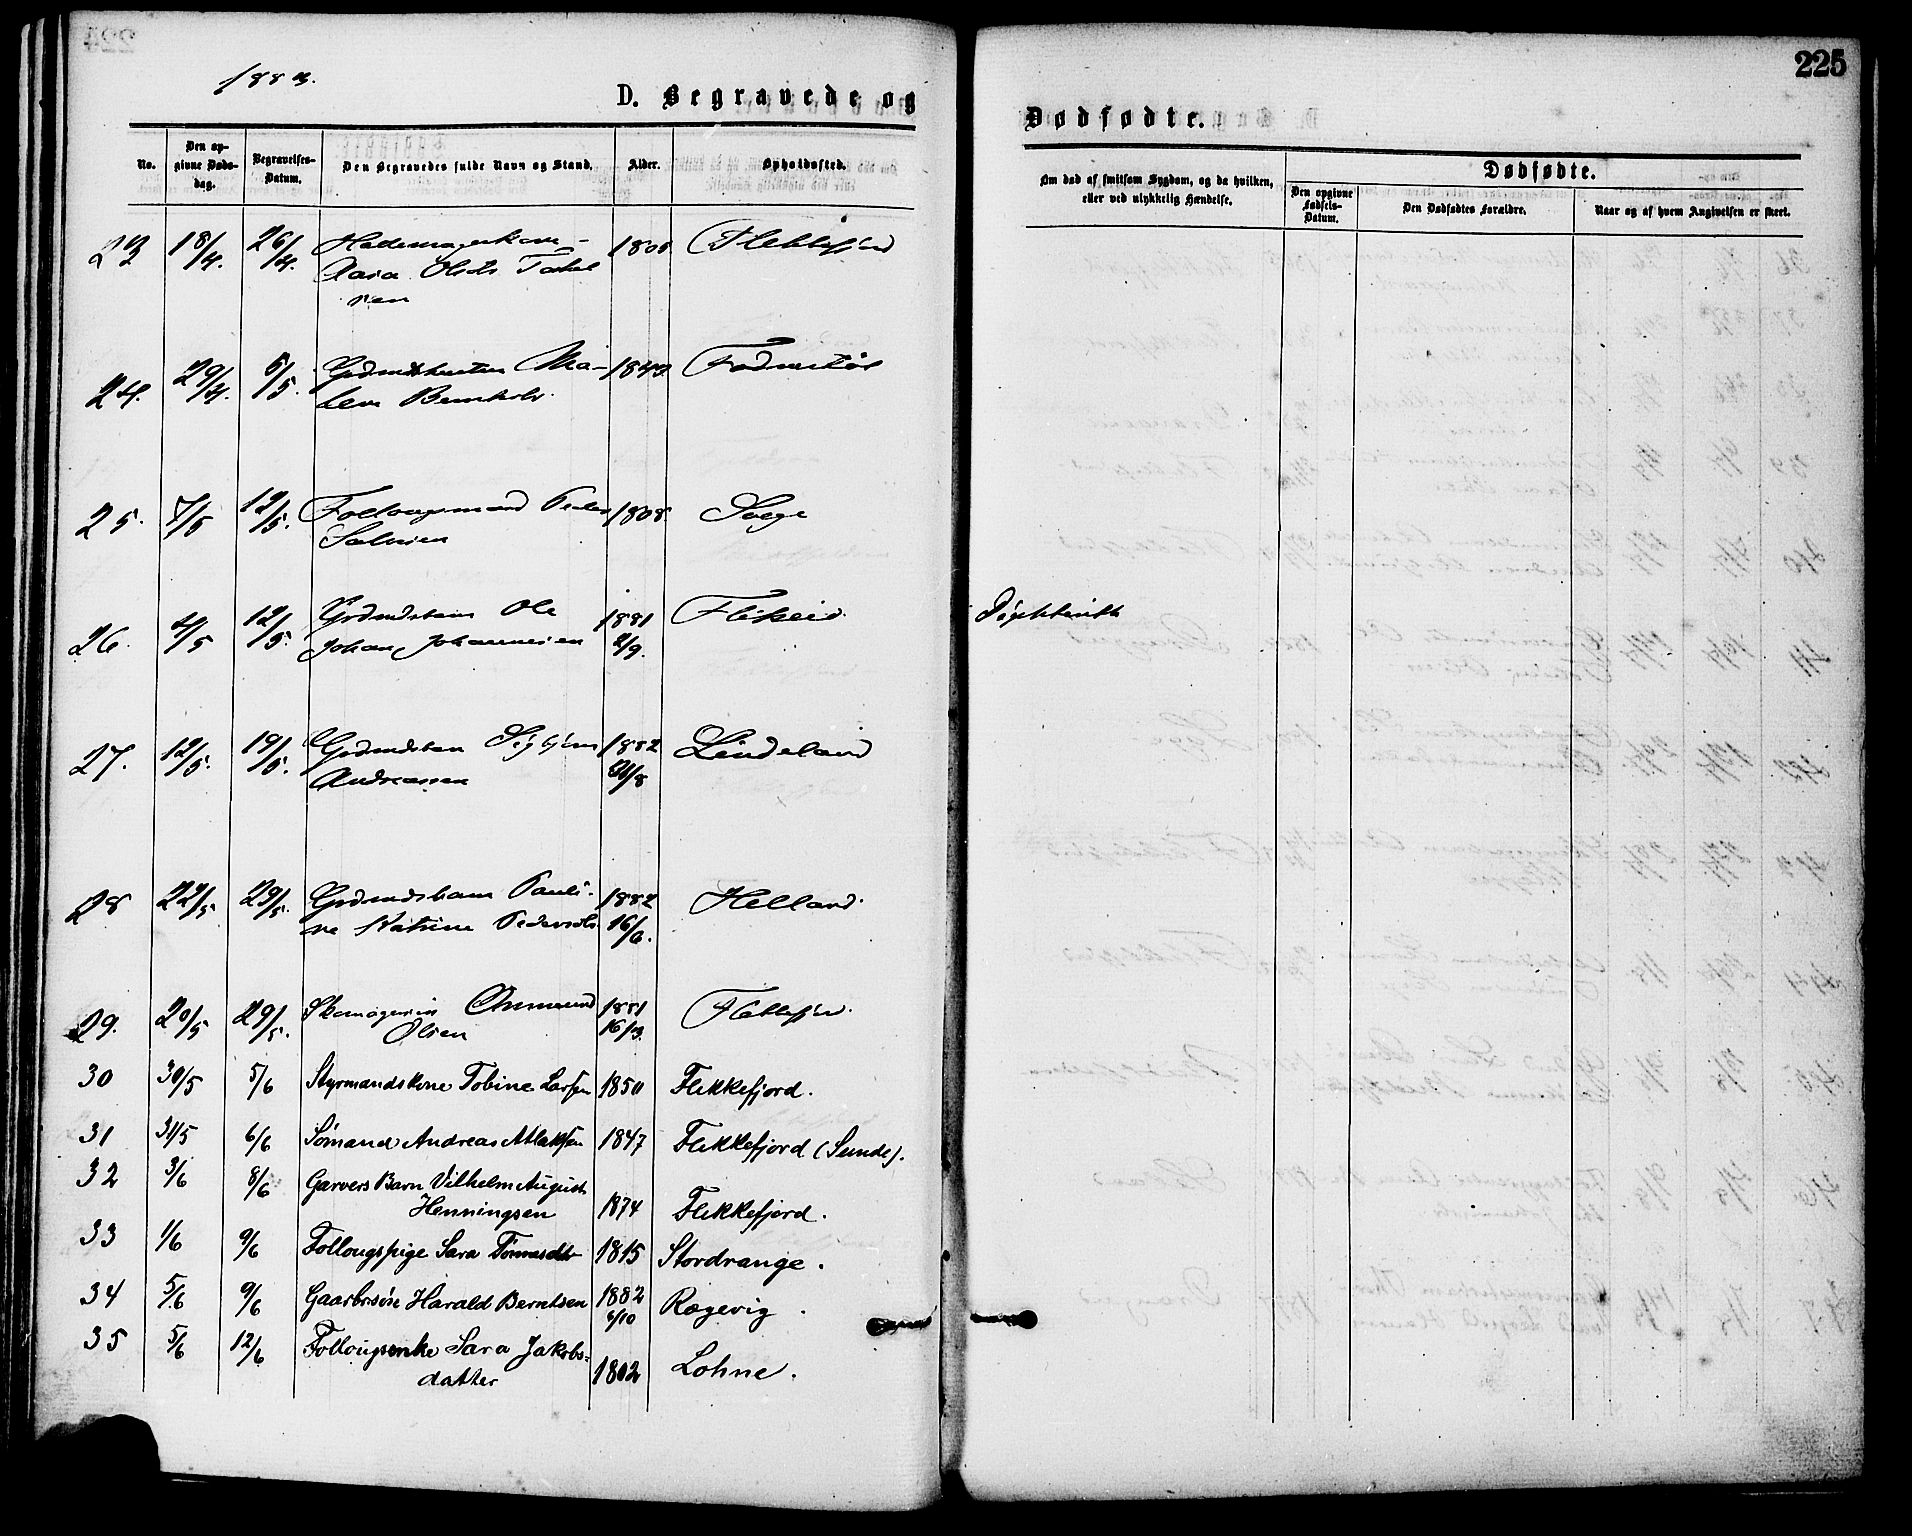 225
1883.
D. Begravede og
Dødfødte.
No.
Den opgivne Dødsdag.
Begravelses-Datum.
Den Begravedes fulde Navn og Stand.
Alder.
Opholdssted.
Om død af smitsom Sygdom, og da hvilken, eller ved ulykkelig Hændelse.
Dødfødte.
Den opgivne Fødsels-Datum.
Den Dødfødtes Forældre.
Naar og af hvem Angivelsen er skeet.
23 18/4. 26/4. Flekkefjord
24. 29/4. 5/5. 1843
25. 7/5 12/5. Føllougsmand Peder 1808.
Salvesen
26. 4/5 12/5. Grdmdsbarn Ole 1881 Flikeid. Diphterit
Johan Johannesen 2/9.
27. 12/5. 19/5. Grdmdsbarn 1882 Lindeland
Andreassen
28 22/5 29/5. Grdmdsbarn Pauli- 1882 Helland.
ne Katrine Pedersdtr. 16/6.
29. 20/5 29/5. Ommund 1881 Flekkefjord.
Olsen 16/3.
30 30/5 5/6 Styrmandskone Tobine Larsen 1850 Flekkefjord.
31 31/5 6/6 Sømand Andreas Atlaksen 1847 Flekkefjord (Sunde).
32 3/6 8/6 Garvers Barn Vilhelm August
Henningsen 1874 Flekkefjord.
33 1/6 9/6 Føllougspige Sara Tønnesdtr 1815 Stordrange.
34 5/6 9/6 Gaardbrs søn Harald Berntsen 1882 Rægevig.
6/10
35 5/6 12/6 Føllougsenke Sara Jakobs-
datter 1802 Lohne.